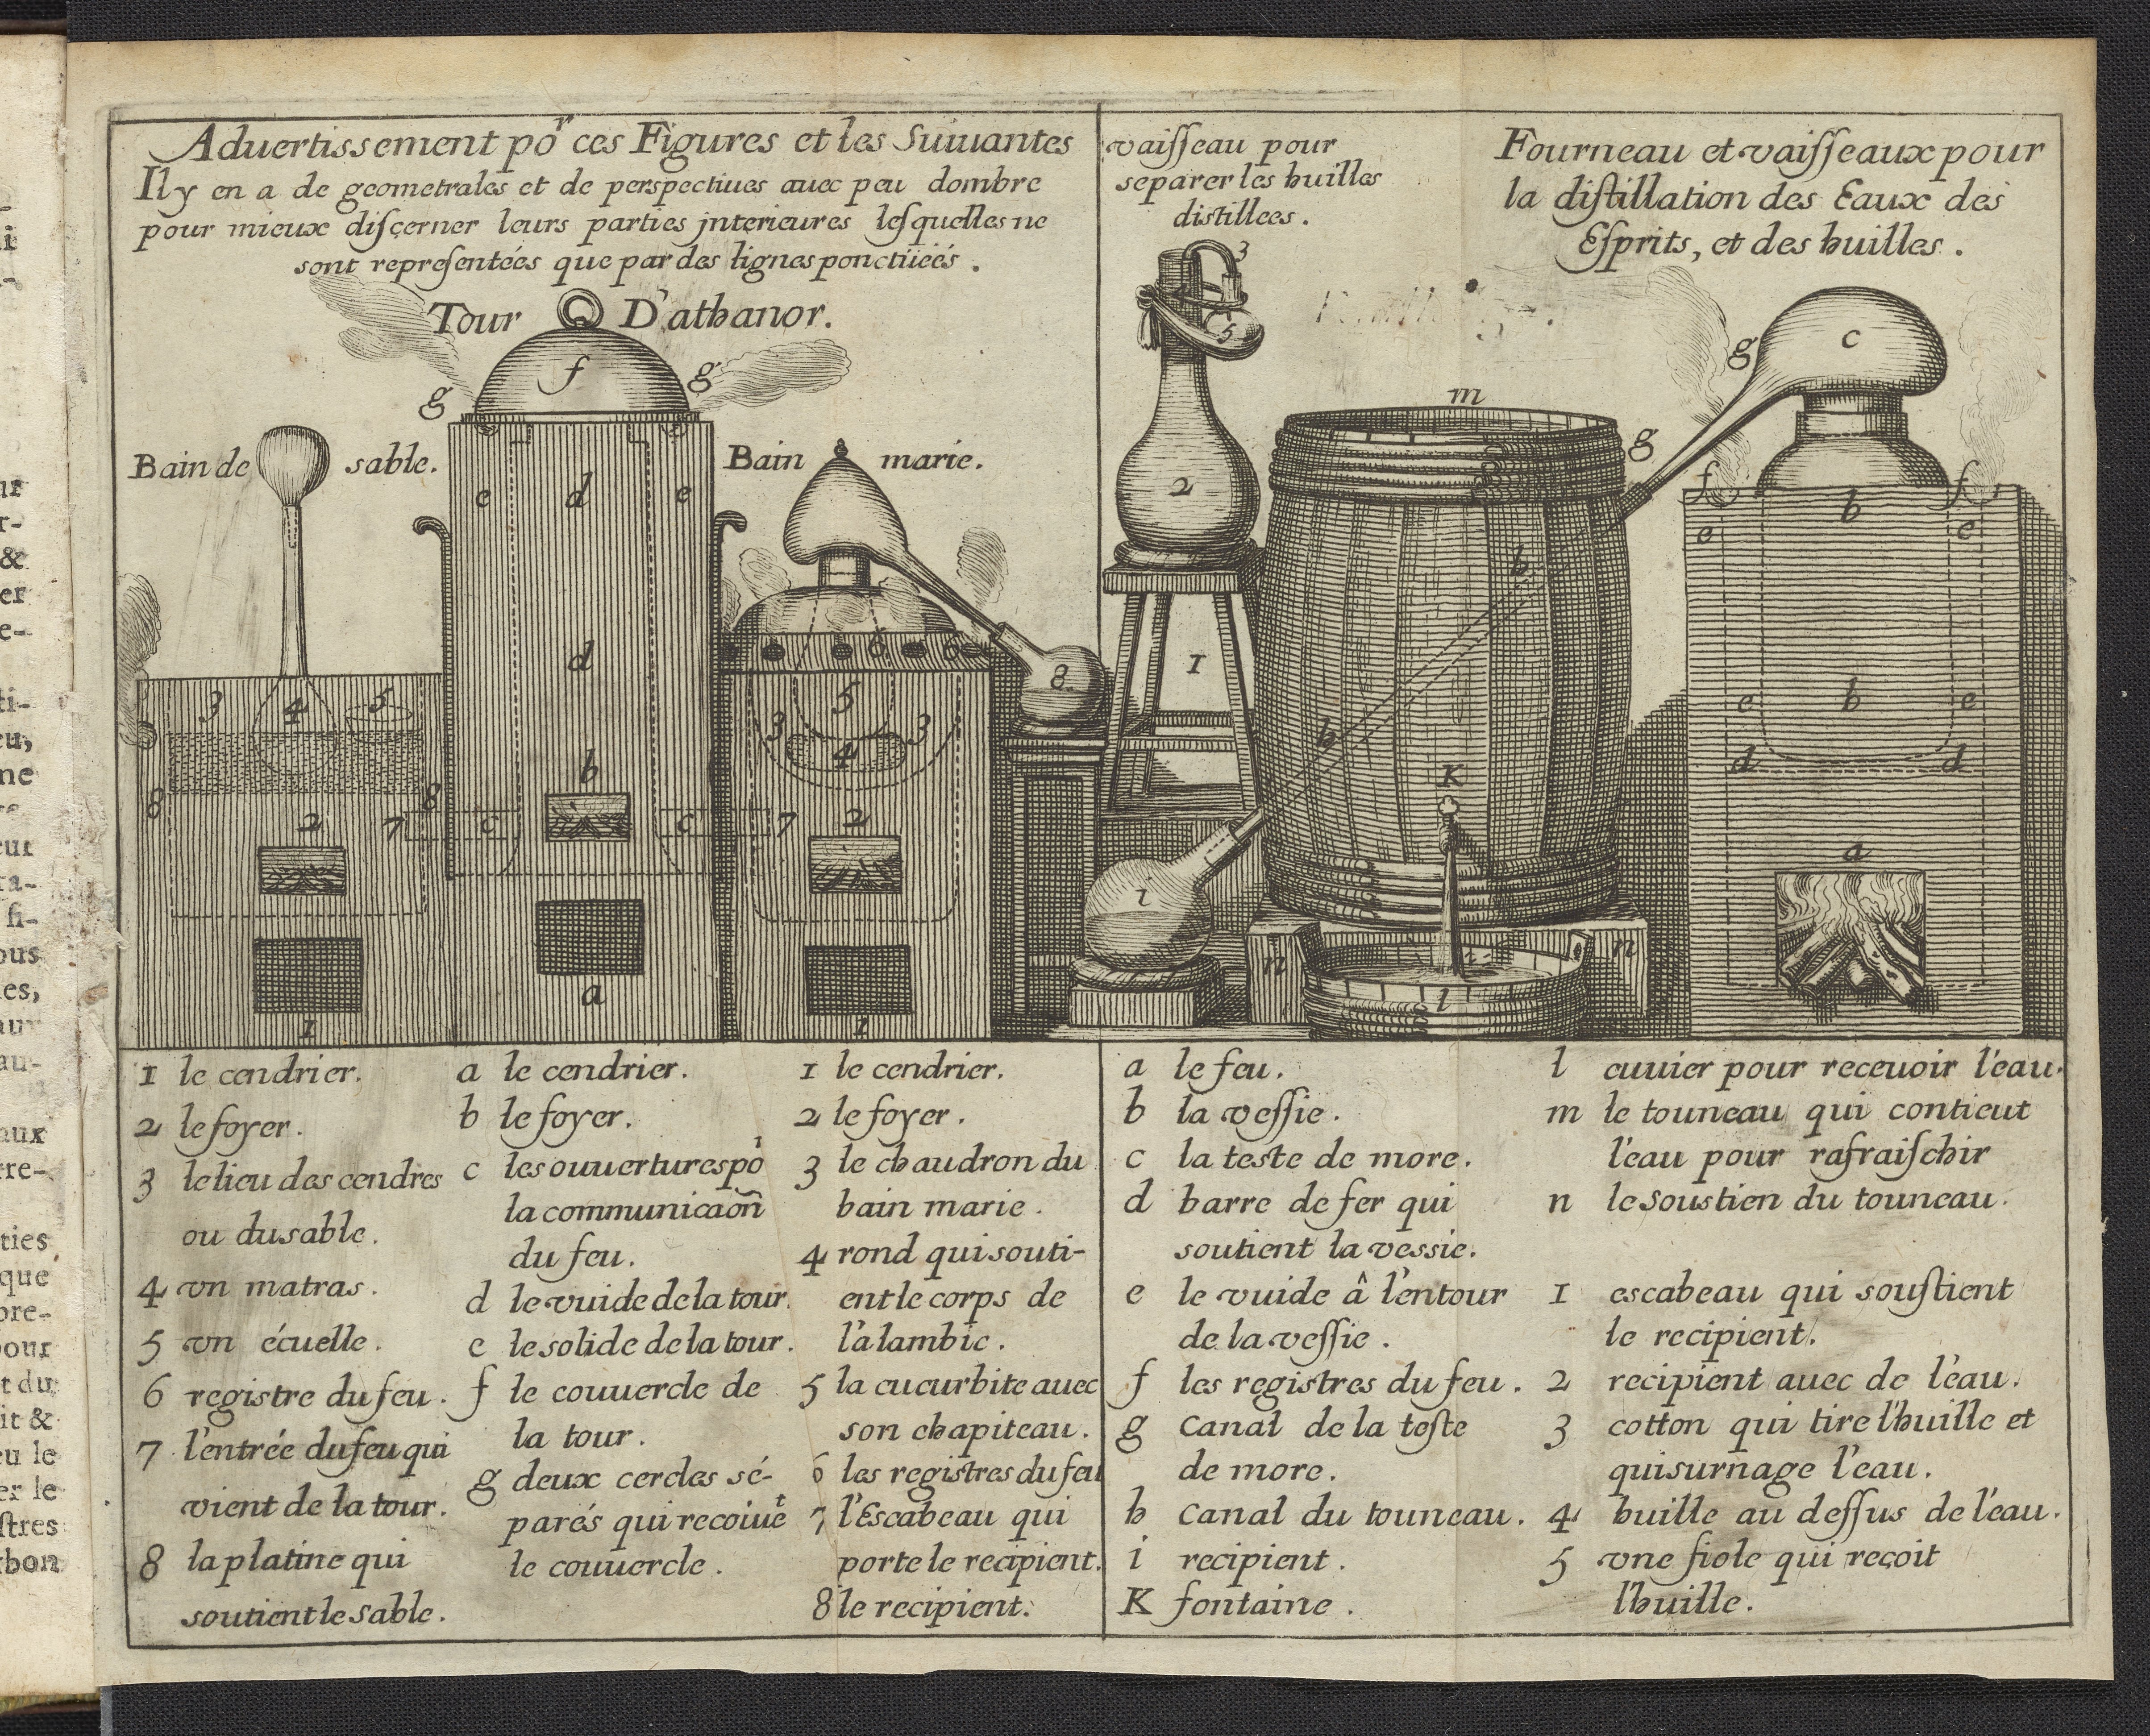 Aduertissement poʳ ces Figures et les Suiuantes
Il y en a de geometrales et de perspectiues auec peu dombre
pour mieux discerner leurs parties jnterieures lesquelles ne
sont representéés que par des lignes ponctüéés.
Tour D'athanor.
f
g g
Bain de sable.
e d e
Bain marie.
d
3 4 5
6 6
8
5
3 3
4
b
8 8
7 c c 7
2 2
a
1 1
vaisseau pour
separer les huilles
distillees.
3
5
2
1
Fourneau et vaisseaux pour
la distillation des Eaux des
Esprits, et des huilles.
c
g
m
g
f f
b
e e
h
e b e
h
d d
K
a
i
n n
l
1 le cendrier.
2 le foyer.
3 le lieu des cendres
ou du sable.
4 vn matras.
5 vn écuelle.
6 registre du feu.
7 l'entrée du feu qui
vient de la tour.
8 la platine qui
soutient le sable.
a le cendrier.
b le foyer.
c les ouuertures poʳ
la communicaõn
du feu.
d le vuide de la tour.
e le solide de la tour.
f le couuercle de
la tour.
g deux cercles sé-
parés qui recoiuēᵗ
le couuercle.
1 le cendrier.
2 le foyer.
3 le chaudron du
bain marie.
4 rond qui souti-
ent le corps de
l'alambic.
5 la cucurbite auec
son chapiteau.
6 les registres du feu
7 l'Escabeau qui
porte le recipient.
8 le recipient.
a le feu.
b la vessie.
c la teste de more.
d barre de fer qui
soutient la vessie.
e le vuide â l'entour
de la vessie.
f les registres du feu.
g canal de la teste
de more.
h canal du touneau.
i recipient.
K fontaine.
l cuuier pour receuoir l'eau.
m le touneau qui contient
l'eau pour rafraischir
n le soustien du touneau.
1 escabeau qui soustient
le recipient.
2 recipient auec de l'eau.
3 cotton qui tire l'huille et
qui surnage l'eau.
4 huille au dessus de l'eau.
5 vne fiole qui reçoit
l'huille.